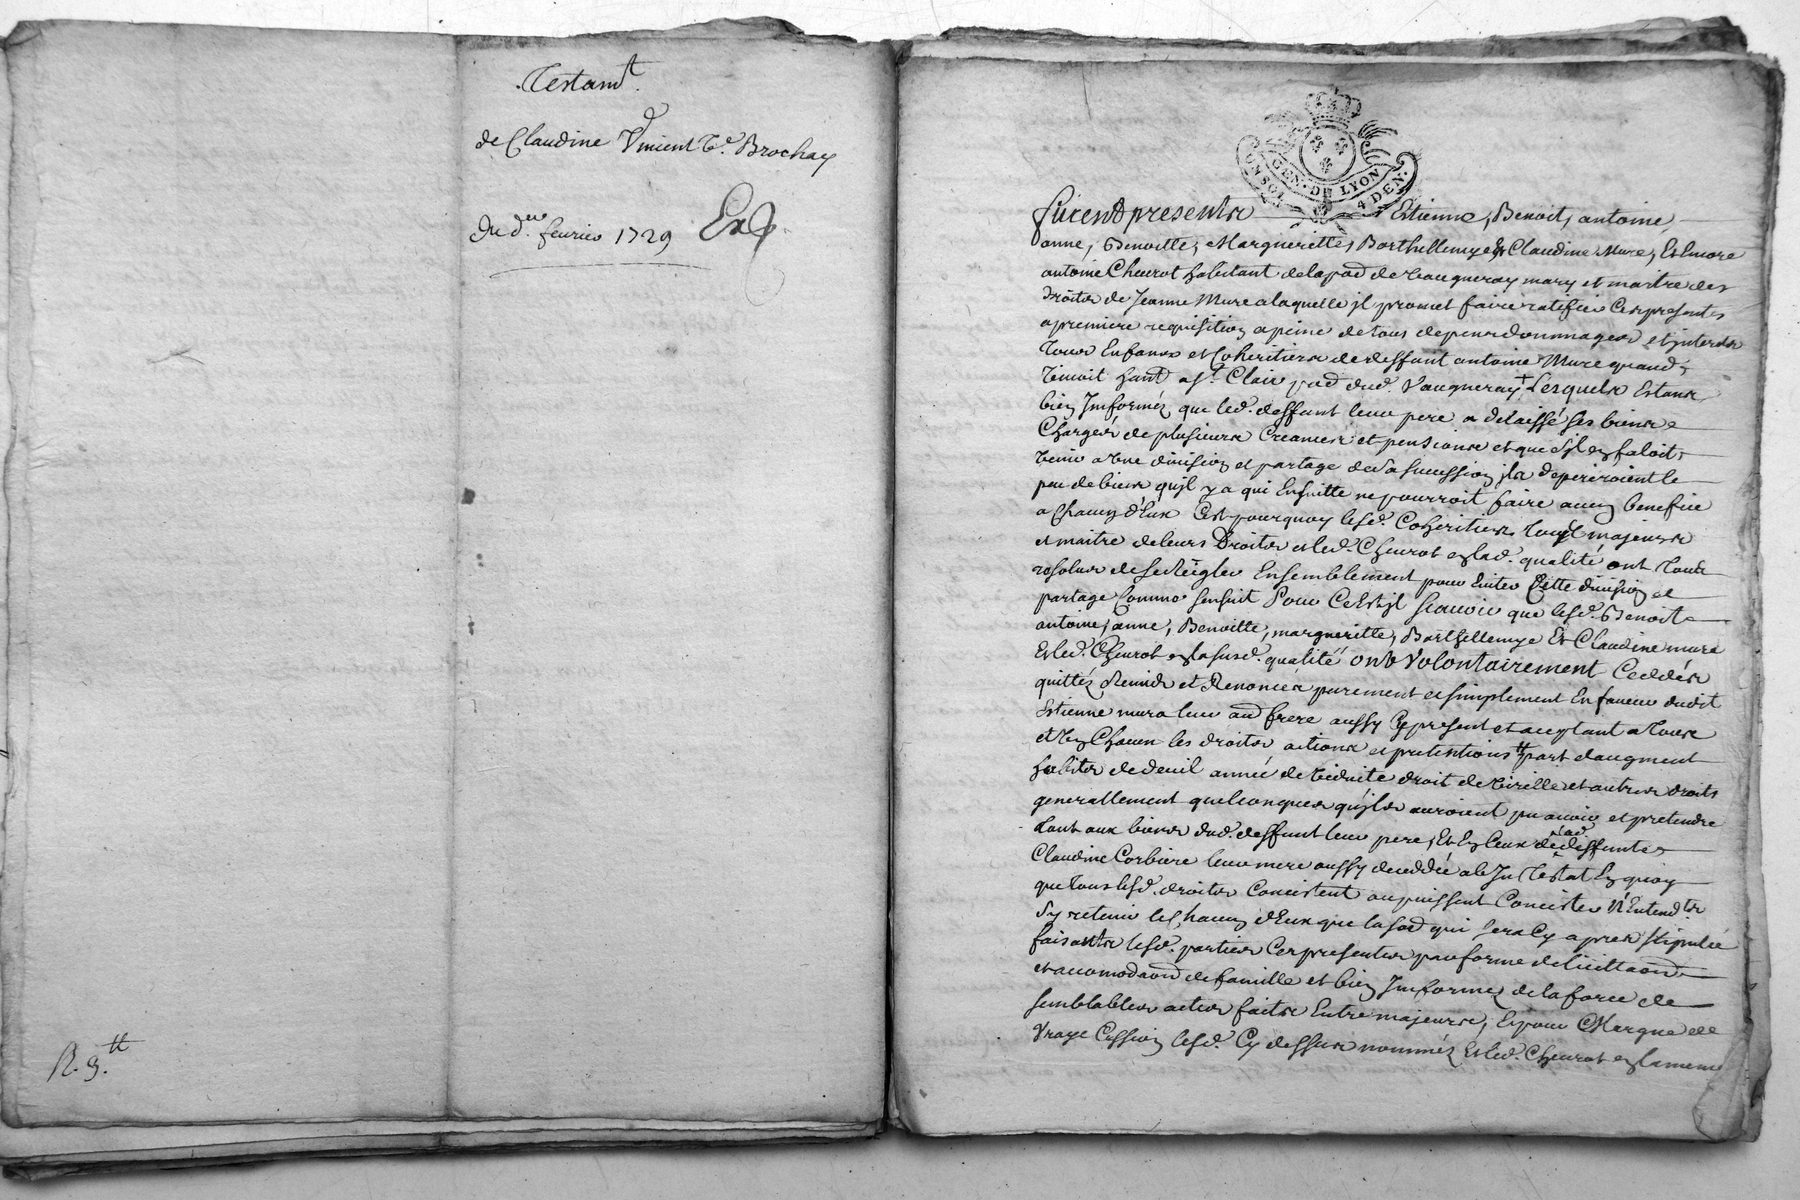 Testamt.
de Claudine Vincent Ve. Brochay
du der. feurier 1729 Exp
R. 9.tt
GEN. DE LYON
UN SOL 4 DEN.
furent presents Estienne, Benoit, antoine,
anne, Benoitte, Margueritte, Barthellemye Et Claudine Mure, Et Encore
antoine Cheurot habitant de la psse de Vaugneray mary et maitre des
droits de Jeanne Mure a laquelle jl promet faire ratefier Ces presentes
a premiere requisition a peine de tous depens dommages et jnterests
tous Enfans et Coheritiers de deffunt antoine Mure quand
viuoit hant a St. Clair psse dud. Vaugneray + Lesquels Estans
bien Jnformés que led. deffunt leur pere a delaissé ses biens
Chargés de plusieurs Creances et pensions et que s'jl en faloit
venir a vne diuision et partage de sa sucession jls deperiroient le
peu de biens qu'jl y a qui Ensuitte ne pourroit faire aucun benefice
a Chacun d'Eux C'est pourquoy lesd. Coheritiers tous majeurs
et maitre de leurs Droits et led. Cheurot en lad. qualité ont tous
resolus de se Regler Ensemblement pour Euiter Cette diuision et
partage Comme s'ensuit Pour Ce Est jl scauoir que lesd. Benoit
antoine, anne, Benoitte, margueritte, Barthellemye Et Claudine mure
Et led. Cheurot en la susd. qualité ont Volontairement Ceddés
quittés Remis et Renoncés purement et simplement En faueur dudit
Estienne mure leur frere aussy Cy present et acceptant a tous
et Vn Chacun les droits actions et pretentions part d'augment
habits de deuil année de viduite droit de Virille et autres droits
generallement quelconques qu'jls auroient pu auoir et pretendre
tant aux biens dud. deffunt leur pere, Et En Ceux de lad. deffunte
Claudine Corbiere leur mere aussy deceddée ab Jntestat En quoy
que tous lesd. droits Concistent ou puissent Concister N'Entend
s'y retenir le Chacun d'Eux que la qui sera Cy apres stipulée
faisants lesd. parties Ces presentes par forme de
et de famille et bien Jnformés de la force de
semblables actes faits Entre majeurs, Et pour Marque de
Vraye Cession lesd. Cy dessus nommés Et led. Cheurot en la meme